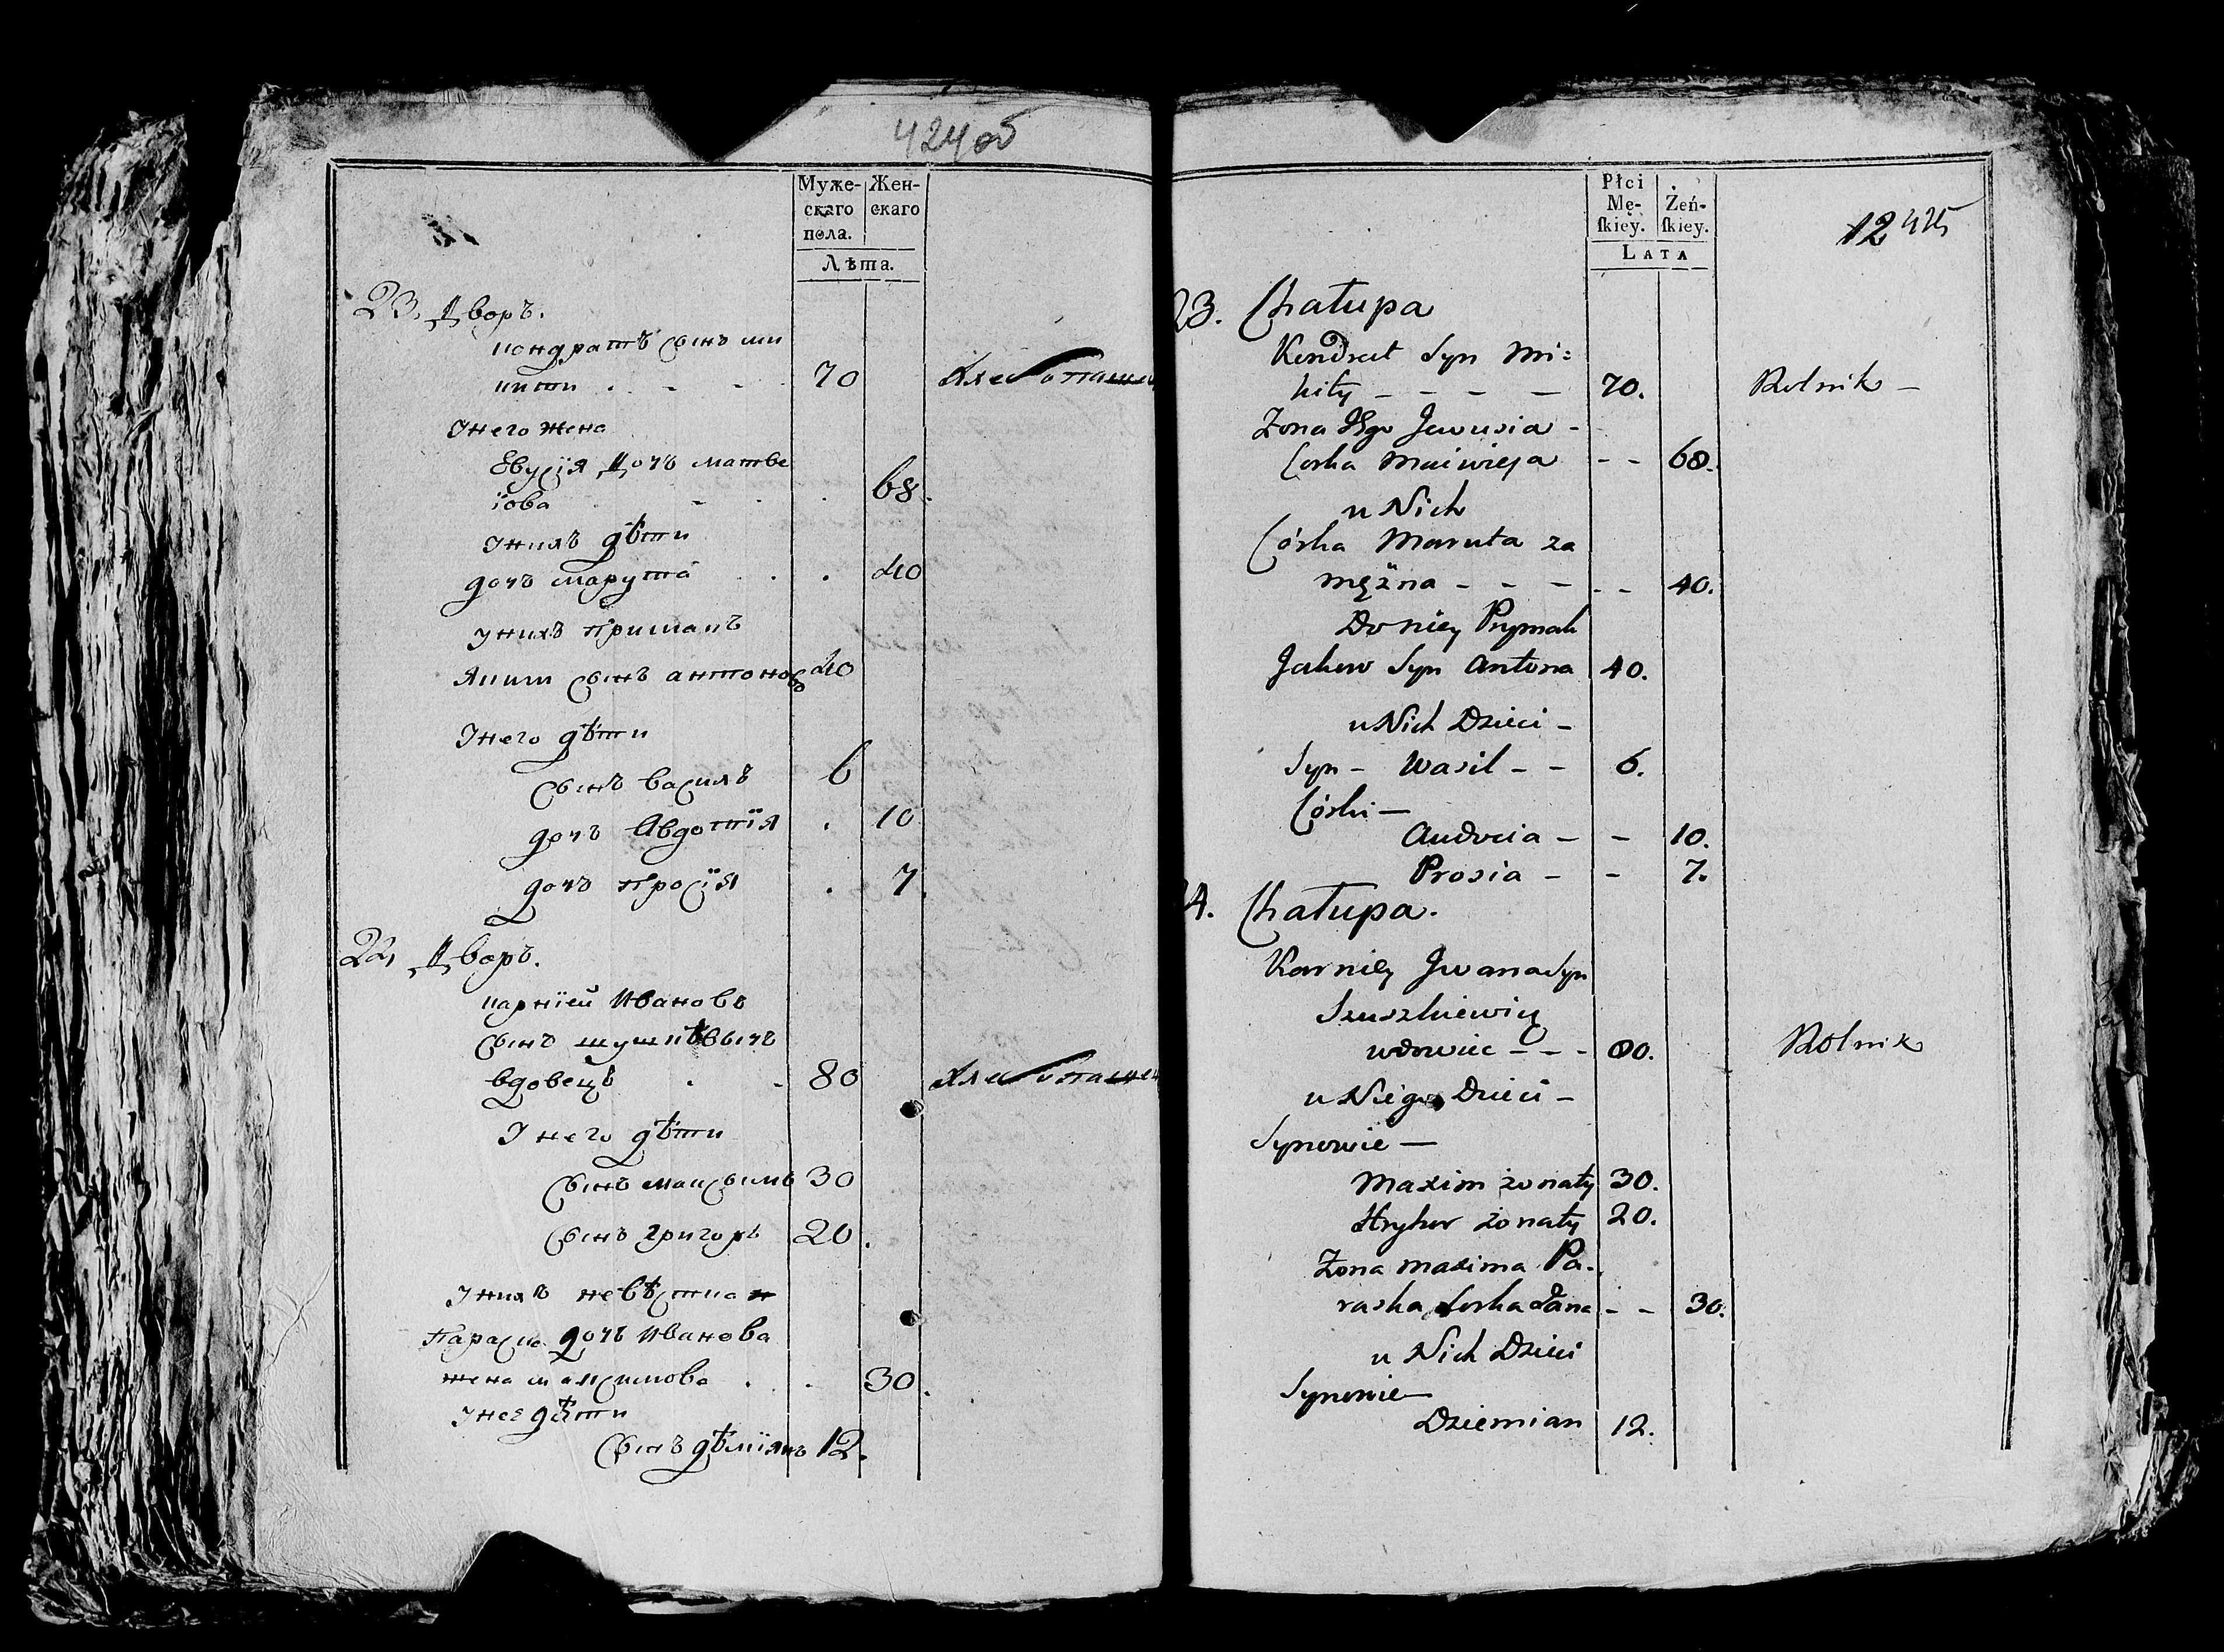 424 об
Муже- Жен-
скаго скаго
пола.
Лѣта.
23. Дворъ.
кондратъ сынъ ми
кити . - - 70 Хлебопашец
Унего жена
Евусїя дочъ матве
їова - . . 68.
Унихъ дѣти
дочъ марута . . . 40
унихъ примакъ
Яким сынъ антоновъ 40
Унего дѣти
сынъ василъ 6
дочъ Авдотїя . 10
дочъ просїя . 7.
24, Дворъ.
карнїей Ивановъ
сынъ шушкѣвычъ
вдовецъ . - 80 Хлебопашец
Унего дѣти
сынъ максымъ 30
сынъ григоръ 20.
Унихъ невѣстка
Параска дочъ Иванова
жена максимова . . 30.
Унее дѣти
сынъ дѣміянъ 12.
Płci Żeń-
Mę- ſkiey.
ſkiey.
LATA
12 425
23. Chałupa
Kondrat Syn Mi=
kity - - - - 70. Rolnik -
Żona Jego Jewusia -
Corka Maiwieja - - 68.
u Nich
Córka Maruta za
mężna - - - - - 40.
Do niey Prymak
Jakow Syn Antona 40.
u Nich Dzieci -
Syn - Wasil - - 6.
Córki -
Audocia - - 10.
Prosia - - 7.
4. Chałupa.
Karniey Jwana Syn
Szuszkiewicz
wdowiec - - - 80. Rolnik
u Niego Dzieci -
Synowie -
Maxim żonaty 30.
Hryhor żonaty 20.
Żona Maxima Pa-
raska Corka Jana - - 30.
u Nich Dzieci
Synowie -
Dziemian 12.